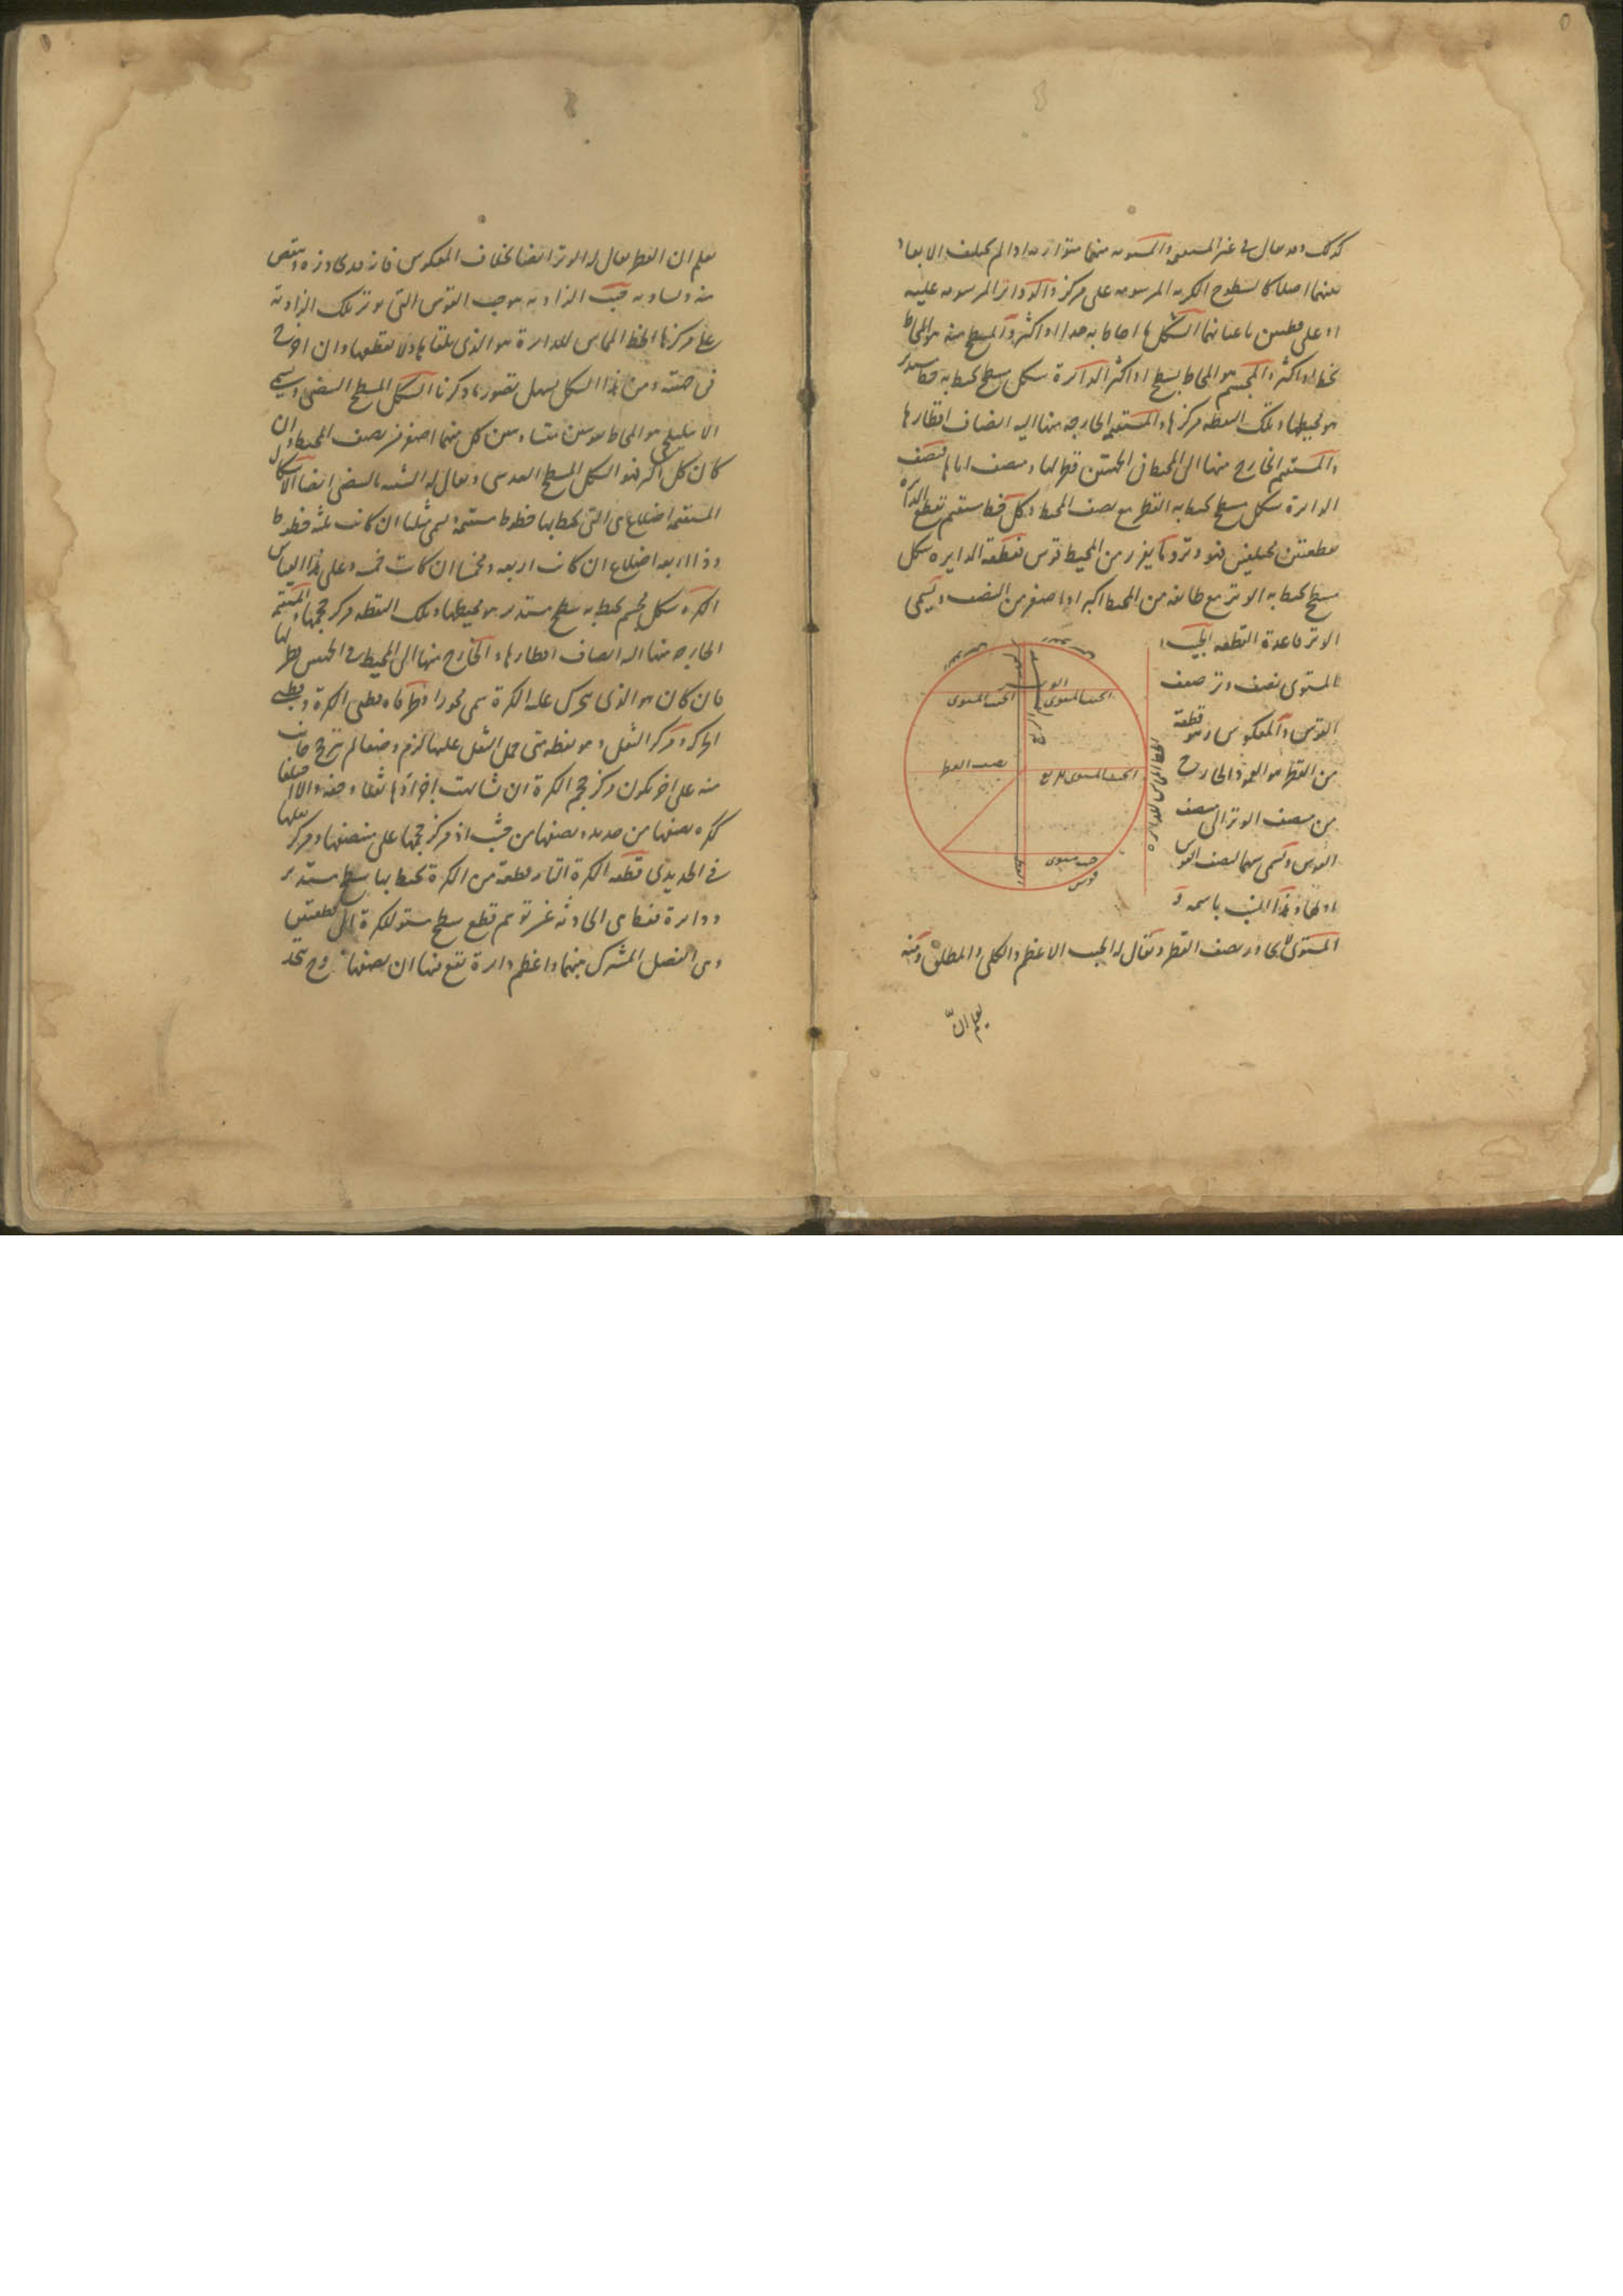 كذلك وقد يقال فى غير المستقيمة والمستوية منهما متوازية اذا لم يختلف الابعاد
بينهما اصلا كالسطوح الكرية المرسومة على مركز والدوائر المرسومة عليه
او على قطبين باعيانهما الشكل ما احاط به حد او اكثر والمسطح منه هو المحاط
بخط او اكثر والمجسم هو المحاط بسطح او اكثر الدائرة شكل مسطح يحيط به خط مستدير
هو محيطها وتلك النقطة مركزها والمستقيمة الخارجة منها اليه انصاف اقطارها
والمستقيم الخارج منها الى المحيط فى الجهتين قطر لها ومنصف اياها نصف
الدائرة شكل مسطح يحيط به القطر مع نصف المحيط وكل خط مستقيم يقطع الدائرة
بقطعتين مختلفتين فهو وتر وما يفرز من المحيط قوس قطعة الدايره شكل
مسطح يحيط به الوتر مع طائفة من المحيط اكبر او اصغر من النصف ويسمى
الوتر قاعدة القطعه الجيب
المستوى نصف وتر ضعف
القوس والمعكوس وهو قطعة
من القطر هو العمود الخارج
من منصف الوتر الى منصف
القوس ويسمى سهما لنصف القوس
المستوى لا يجاوز نصف القطر ويقال له الجيب الاعظم والكلى والمطلق ومنه
يعلم ان
الجيب المستوى
الجيب المستوى
نصف القطر
جيب مستوى
قوس
القطر
الخط المماس للدائره
يعلم ان القطر يقال له الوتر ايضا بخلاف المعكوس فانه قد يجاوزه وينقص
منه ويساويه جيب الزاويه هو جيب القوس التى يوتر تلك الزاوية
على مركزها الخط المماس للدايرة هو الذى يلقاها ولا يقطعها وان اخرج
فى جهتيه ومن هذا الشكل يسهل تصور ما ذكرنا الشكل المسطح البيضى ويسمى
الاهليلجى هو المحاط بقوسين متساويتين كل منهما اصغر من نصف المحيط وان
كان كل اكبر فهو الشكل المسطح العدسى ويقال له الشبيه بالبيضى ايضا الاشكال
المستقيمة اضلاع هى التى يحيط بها خطوط مستقيمة يسمى مثلثا ان كانت ثلثه خطوط
وذا اربعه اضلاع ان كانت اربعه ومخمسا ان كانت خمسه وعلى هذا القياس
الكره شكل مجسم يحيط به سطح مستدير هو محيطها وتلك النقطه مركز حجمها والمستقيمة
الخارجه منها اليه انصاف اقطارها والخارج منها الى المحيط فى الجهتين قطر لها
فان كان هو الذى يتحرك عليه الكرة سمى محورا وطرفاه قطبى الكرة وقطبى
الحركه ومركز الثقل هو نقطه متى حمل الثقل عليها لزم وضعا لم يترجح جانب
منه على اخر يكون مركز حجم الكرة ان تشابهت اجزاؤها ثقلا وخفه والا اختلفا
ككره نصفها من حديد ونصفها من خشب اذ مركز حجمها على منتصفها ومركز ثقلها
فى الحديدى قطعه الكرة قطعة من الكرة يحيط بها سطح مستدير
ودائرة قطع سطح مستو للكرة الى قطعتين
وهى الفصل المشترك بينهما واعظم دائرة تقع فيها ان نصفها